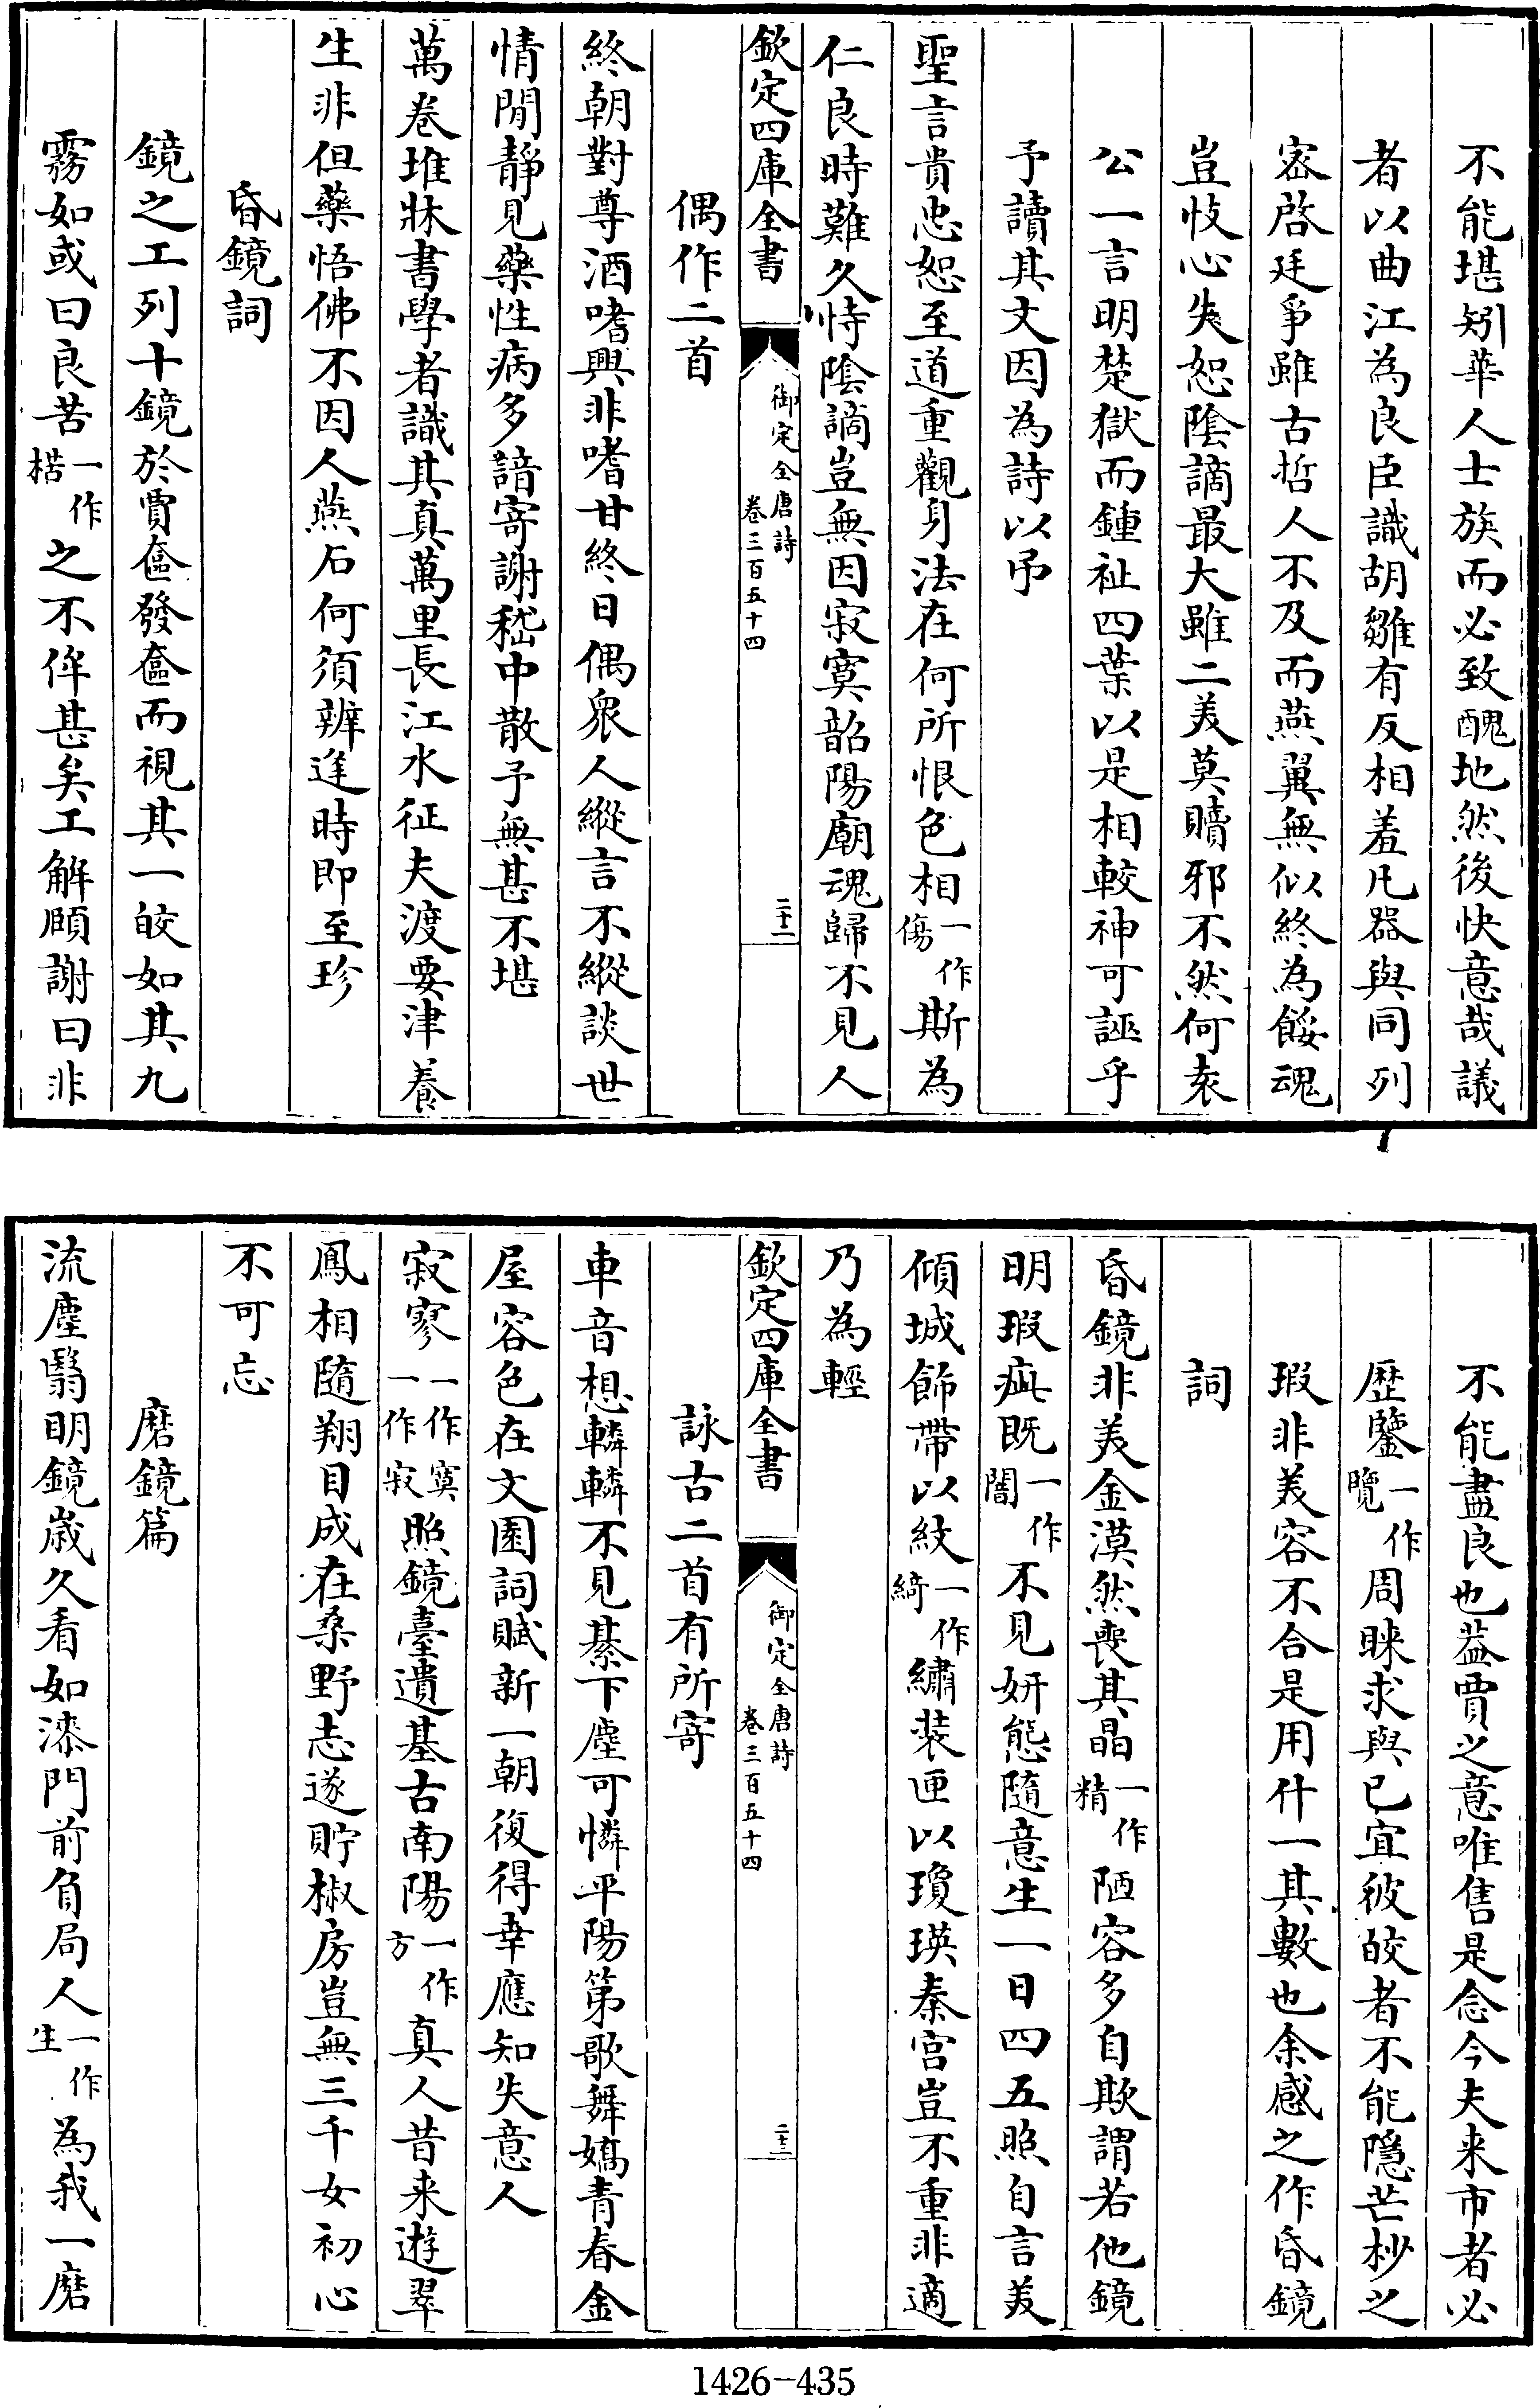 不能堪矧華人士族而必致醜地然後快意哉議
者以曲江為良臣識胡雛有反相羞凡器與同列
宻啓廷爭雖古哲人不及而燕翼無似終為餒魂
豈忮心失恕陰謫最大雖二美莫贖邪不然何袁
公一言明楚獄而鍾祉四葉以是相較神可誣乎
予讀其文因為詩以弔
聖言貴忠恕至道重觀身法在何所恨色相一作傷斯為
仁良時難久恃陰謫豈無因寂寞韶陽廟魂歸不見人
欽定四庫全書
御定全唐詩
卷三百五十四
二十一
偶作二首
終朝對尊酒嗜興非嗜甘終日偶衆人縱言不縱談世
情閒靜見藥性病多諳寄謝嵇中散予無甚不堪
萬卷堆牀書學者識其真萬里長江水征夫渡要津養
生非但藥悟佛不因人燕石何須辨逢時即至珍
昏鏡詞
鏡之工列十鏡於賈奩發奩而視其一皎如其九
霧如或曰良苦一作楛之不侔甚矣工解頤謝曰非
不能盡良也葢賈之意唯售是念今夫来市者必
歴鑒一作覽周睞求與已宜彼皎者不能隱芒杪之
瑕非美容不合是用什一其數也余感之作昏鏡
詞
昏鏡非美金漠然喪其晶一作精陋容多自欺謂若他鏡
明瑕疵既一作闇不見妍態隨意生一日四五照自言美
傾城飾帶以紋一作綺繡装匣以瓊瑛秦宫豈不重非適
乃為輕
欽定四庫全書
御定全唐詩
卷三百五十四
二十二
詠古二首有所寄
車音想轔轔不見綦下塵可憐平陽第歌舞嬌青春金
屋容色在文園詞賦新一朝復得幸應知失意人
寂寥一作寞一作寂照鏡臺遺基古南陽一作方真人昔来遊翠
鳳相隨翔目成在桑野志遂貯椒房豈無三千女初心
不可忘
磨鏡篇
流塵翳明鏡歳久看如漆門前負局人一作生為我一磨
1426-435